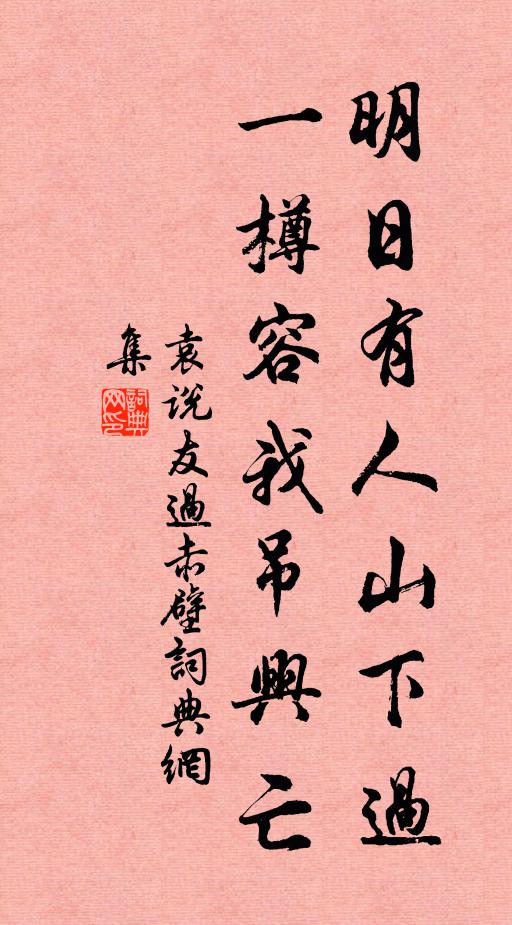 明日有人山下過
一樽容我吊興亡
袁説友過赤壁詞典網
集
詞典
网印